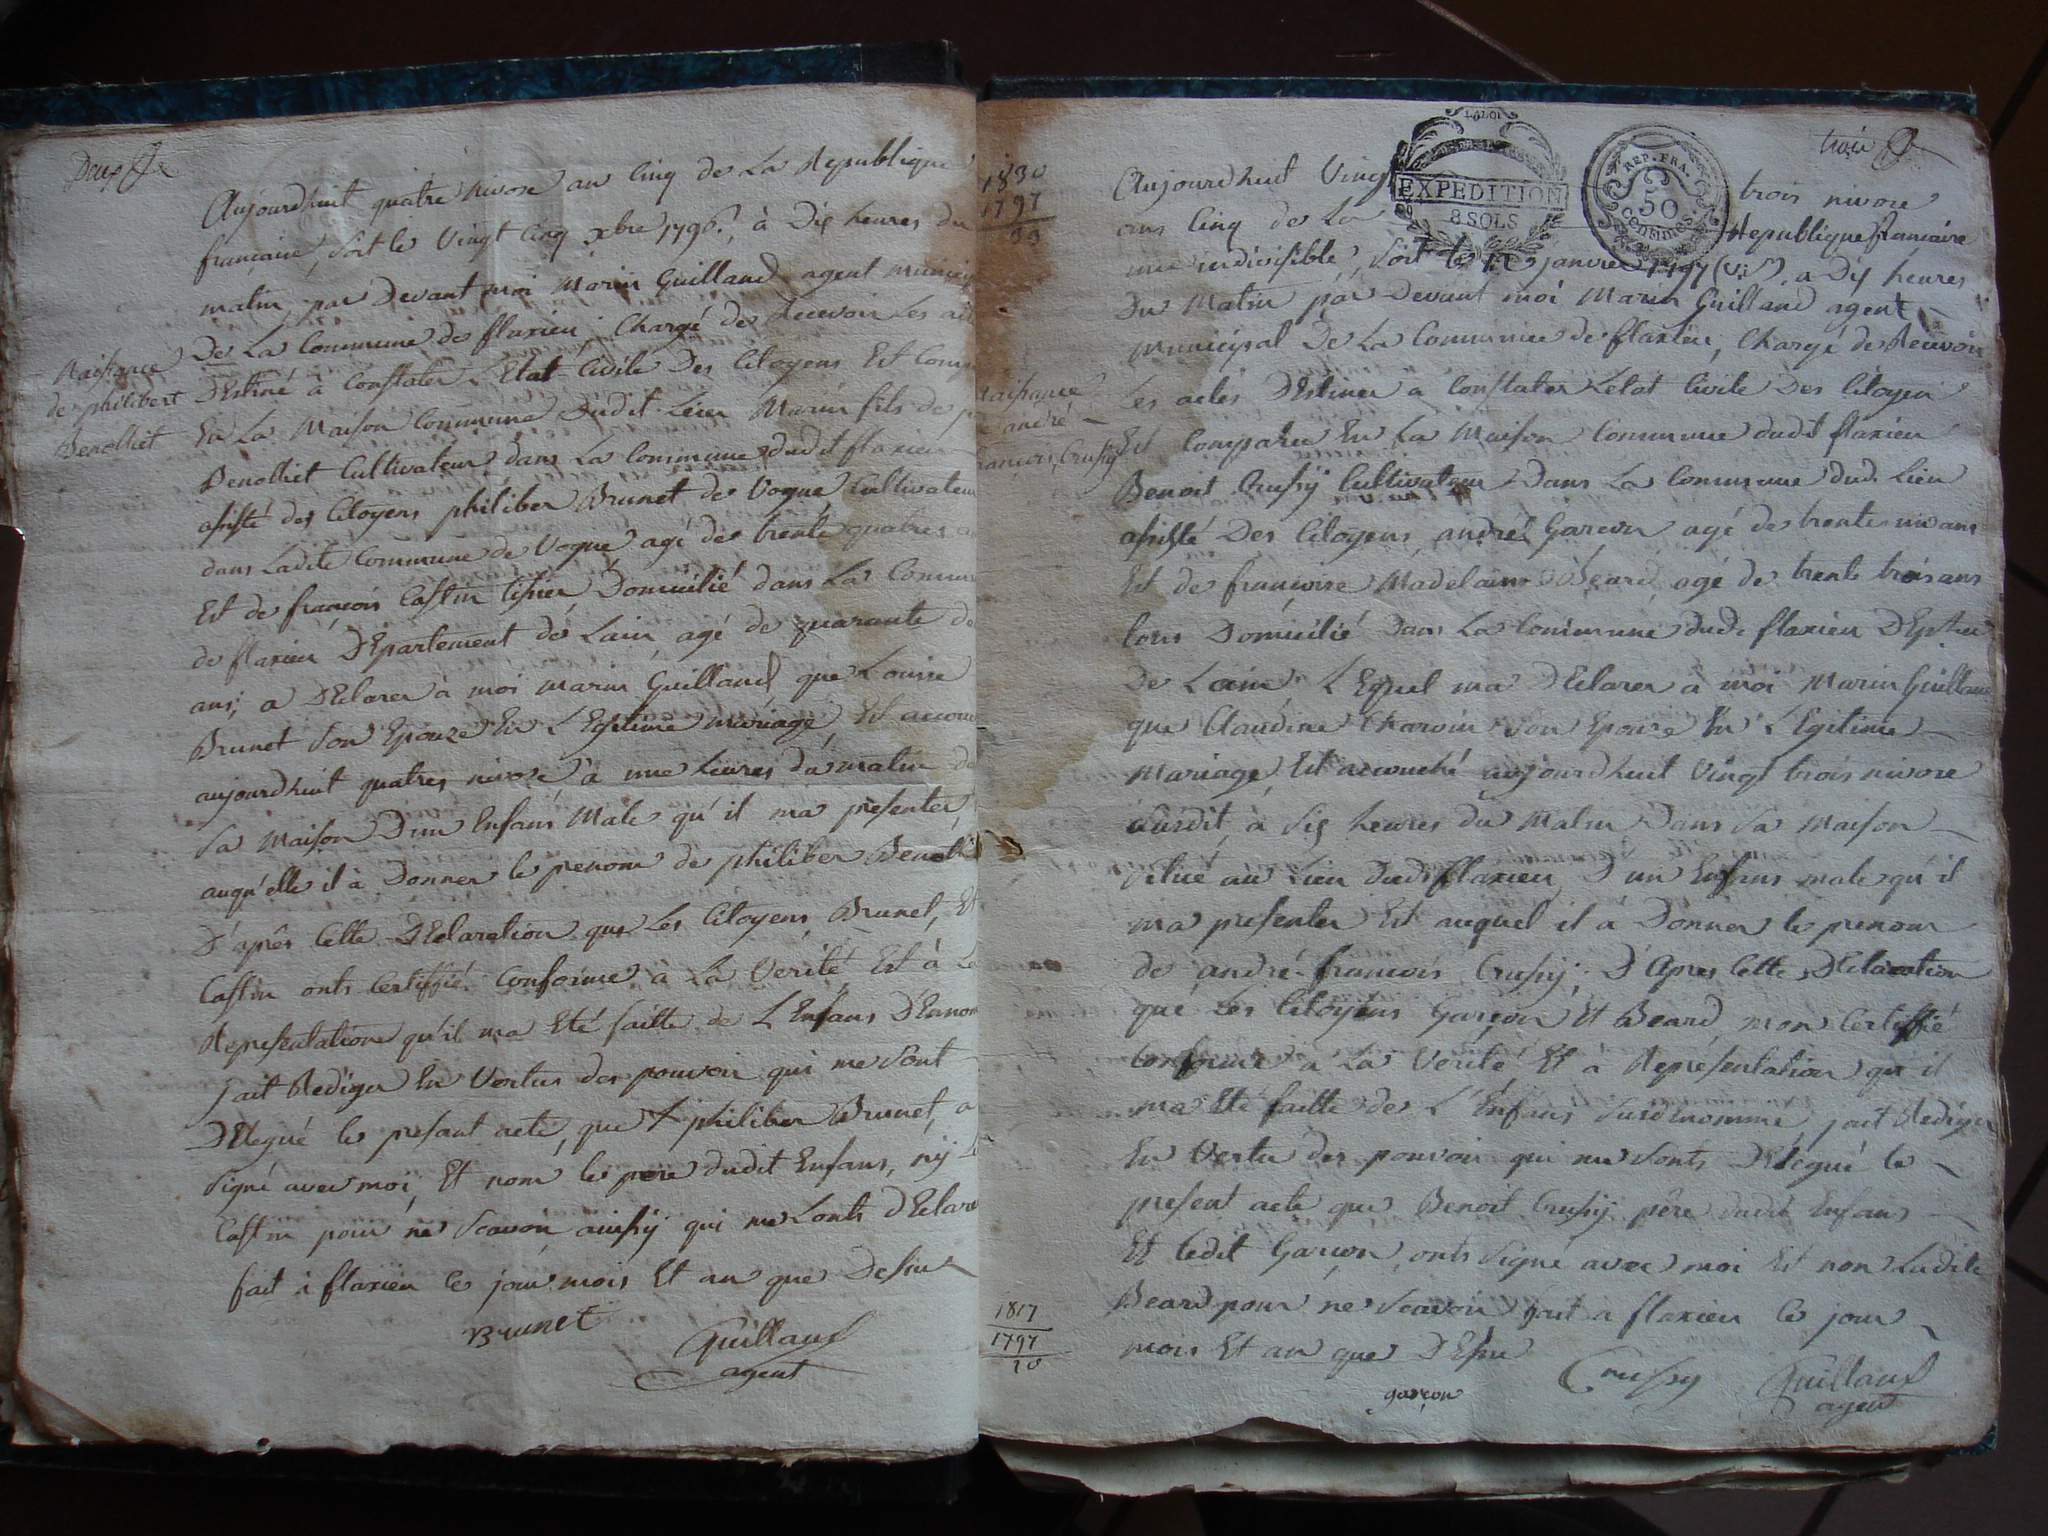 Deux
Aujourdhuit quatre nivose an Cinq de La Republique
francaise, soit le Vingt Cinq xbre 1796. à Dix heures du
matin, par Devant moi Marin Guilland agent municip
De La Commune de flaxieu, Chargé de Recevoir Les act
Naissance
de philibert
Benolliet
DEstiné à Constater L'Etat Civile Des Citoyens Est Comp
En La Maison Commune Dudit Lieu Marin fils de
Benolliet Cultivateur dans La Commune dudit flaxieu
assisté des Citoyens philiber Brunet de Vogne Cultivateur
dans Ladite Commune de Vogne agé de trente quatres
Est de francois Castin tissier Domicilié dans La Commun
de flaxieu DEpartement de Lain agé de quarante de
ans, a DEclarer à moi marin Guilland que Louise
Brunet son Epouze En LEgitime mariage, Est accouc
aujourdhuit quatres nivose à une heures du matin de
sa Maison D'un Enfans Male qu'il ma presenter,
auqu'elle il à Donner le prenom de philiber Benolli
D'après Cette DEclaration que Les Citoyens Brunet, Et
Castin onts Certiffié Conforme à La Verité Est à La
Representatione qu'il ma Eté faitte de L'Enfans DEnom
fait Rediger En Vertus des pouvoir qui me sont
DElegué le present acte, que philiber Brunet, a
signé avec moi, Et nom le pere dudit Enfans, nÿ Le
Castin pour ne scavoir ainssÿ qui me Lonts dEclare
fait à flaxieu le jour mois Et an que Dessu
Brunet
Guilland
agent
1830
1797
33
LA LOI
EXPEDITION
8 SOLS
REP. FRA.
50
centimes
trois
Aujourdhuit Vingt trois nivose
ans Cinq de La Republique francaise
une indivisible, soit le 12 janvier 1797 (vs) a Dix heures
Du Matin par Devant moi Marin Guilland agent
Municipal De La Commune de flaxieu, Chargé de Recevoir
naissance
andré
francois, Crussÿ
Les actes DEstiner a Constater Letat Civile Des Citoyen
Est Comparu En La Maison Commune dudit flaxieu
Benoit Crussÿ Cultivateur Dans La Commune dud. Lieu
assisté Des Citoyens, andré Garcon agé de trente un ans
Est de francoise Madelaine Béard, agé de trente trois ans
tous Domicilié Dans La Commune dud. flaxieu
De Lain LEquel ma DEclarer à moi Marin Guilland
que Claudine Charvin son Epouze En LEgitime
Mariage, Est accouché aujourdhuit Vingt trois nivose
susdit, à six heures du Matin Dans sa Maison
situé au Lieu dud flaxieu, D'un Enfans male qu'il
ma presenter Est auquel il à Donner le prenom
de andré-francois Crussÿ, D'Apres Cette DEclaration
que Les Citoyens Garçon Et Beard mon Certiffié
Conforme à La Verité Et à Représentation qu'il
ma Eté faitte de L'Enfans susdEnommé fait Rediger
En Vertu des pouvoir qui me sonts DElegué le
present acte que Benoit Crussÿ père dudit Enfans
Et Ledit Garçon onts signé avec moi Est non Ladite
Beard pour ne scavoir fait a flaxieu le jour
mois Et an que DEssu
1817
1797
20
garçon
Crussy
Guilland
agent